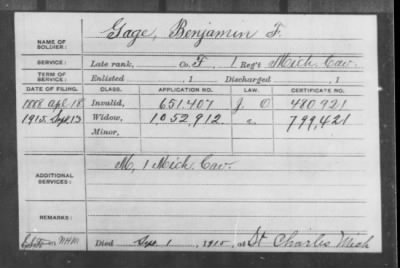 NAME OF SOLDIER: Gage, Benjamin F.
SERVICE: Late rank, Co. F, 1 Reg't Mich. Cav.
TERM OF SERVICE: Enlisted , 1 Discharged , 1
DATE OF FILING. CLASS. APPLICATION NO. LAW. CERTIFICATE NO.
1888 Apl 18 Invalid, 651,407 J. O 480,921
1915 Sept 13 Widow, 1,052,912 799,421
Minor,
ADDITIONAL SERVICES: M, 1 Mich. Cav.
REMARKS:
MHM Died Sep. 1, 1915, at St Charles Mich